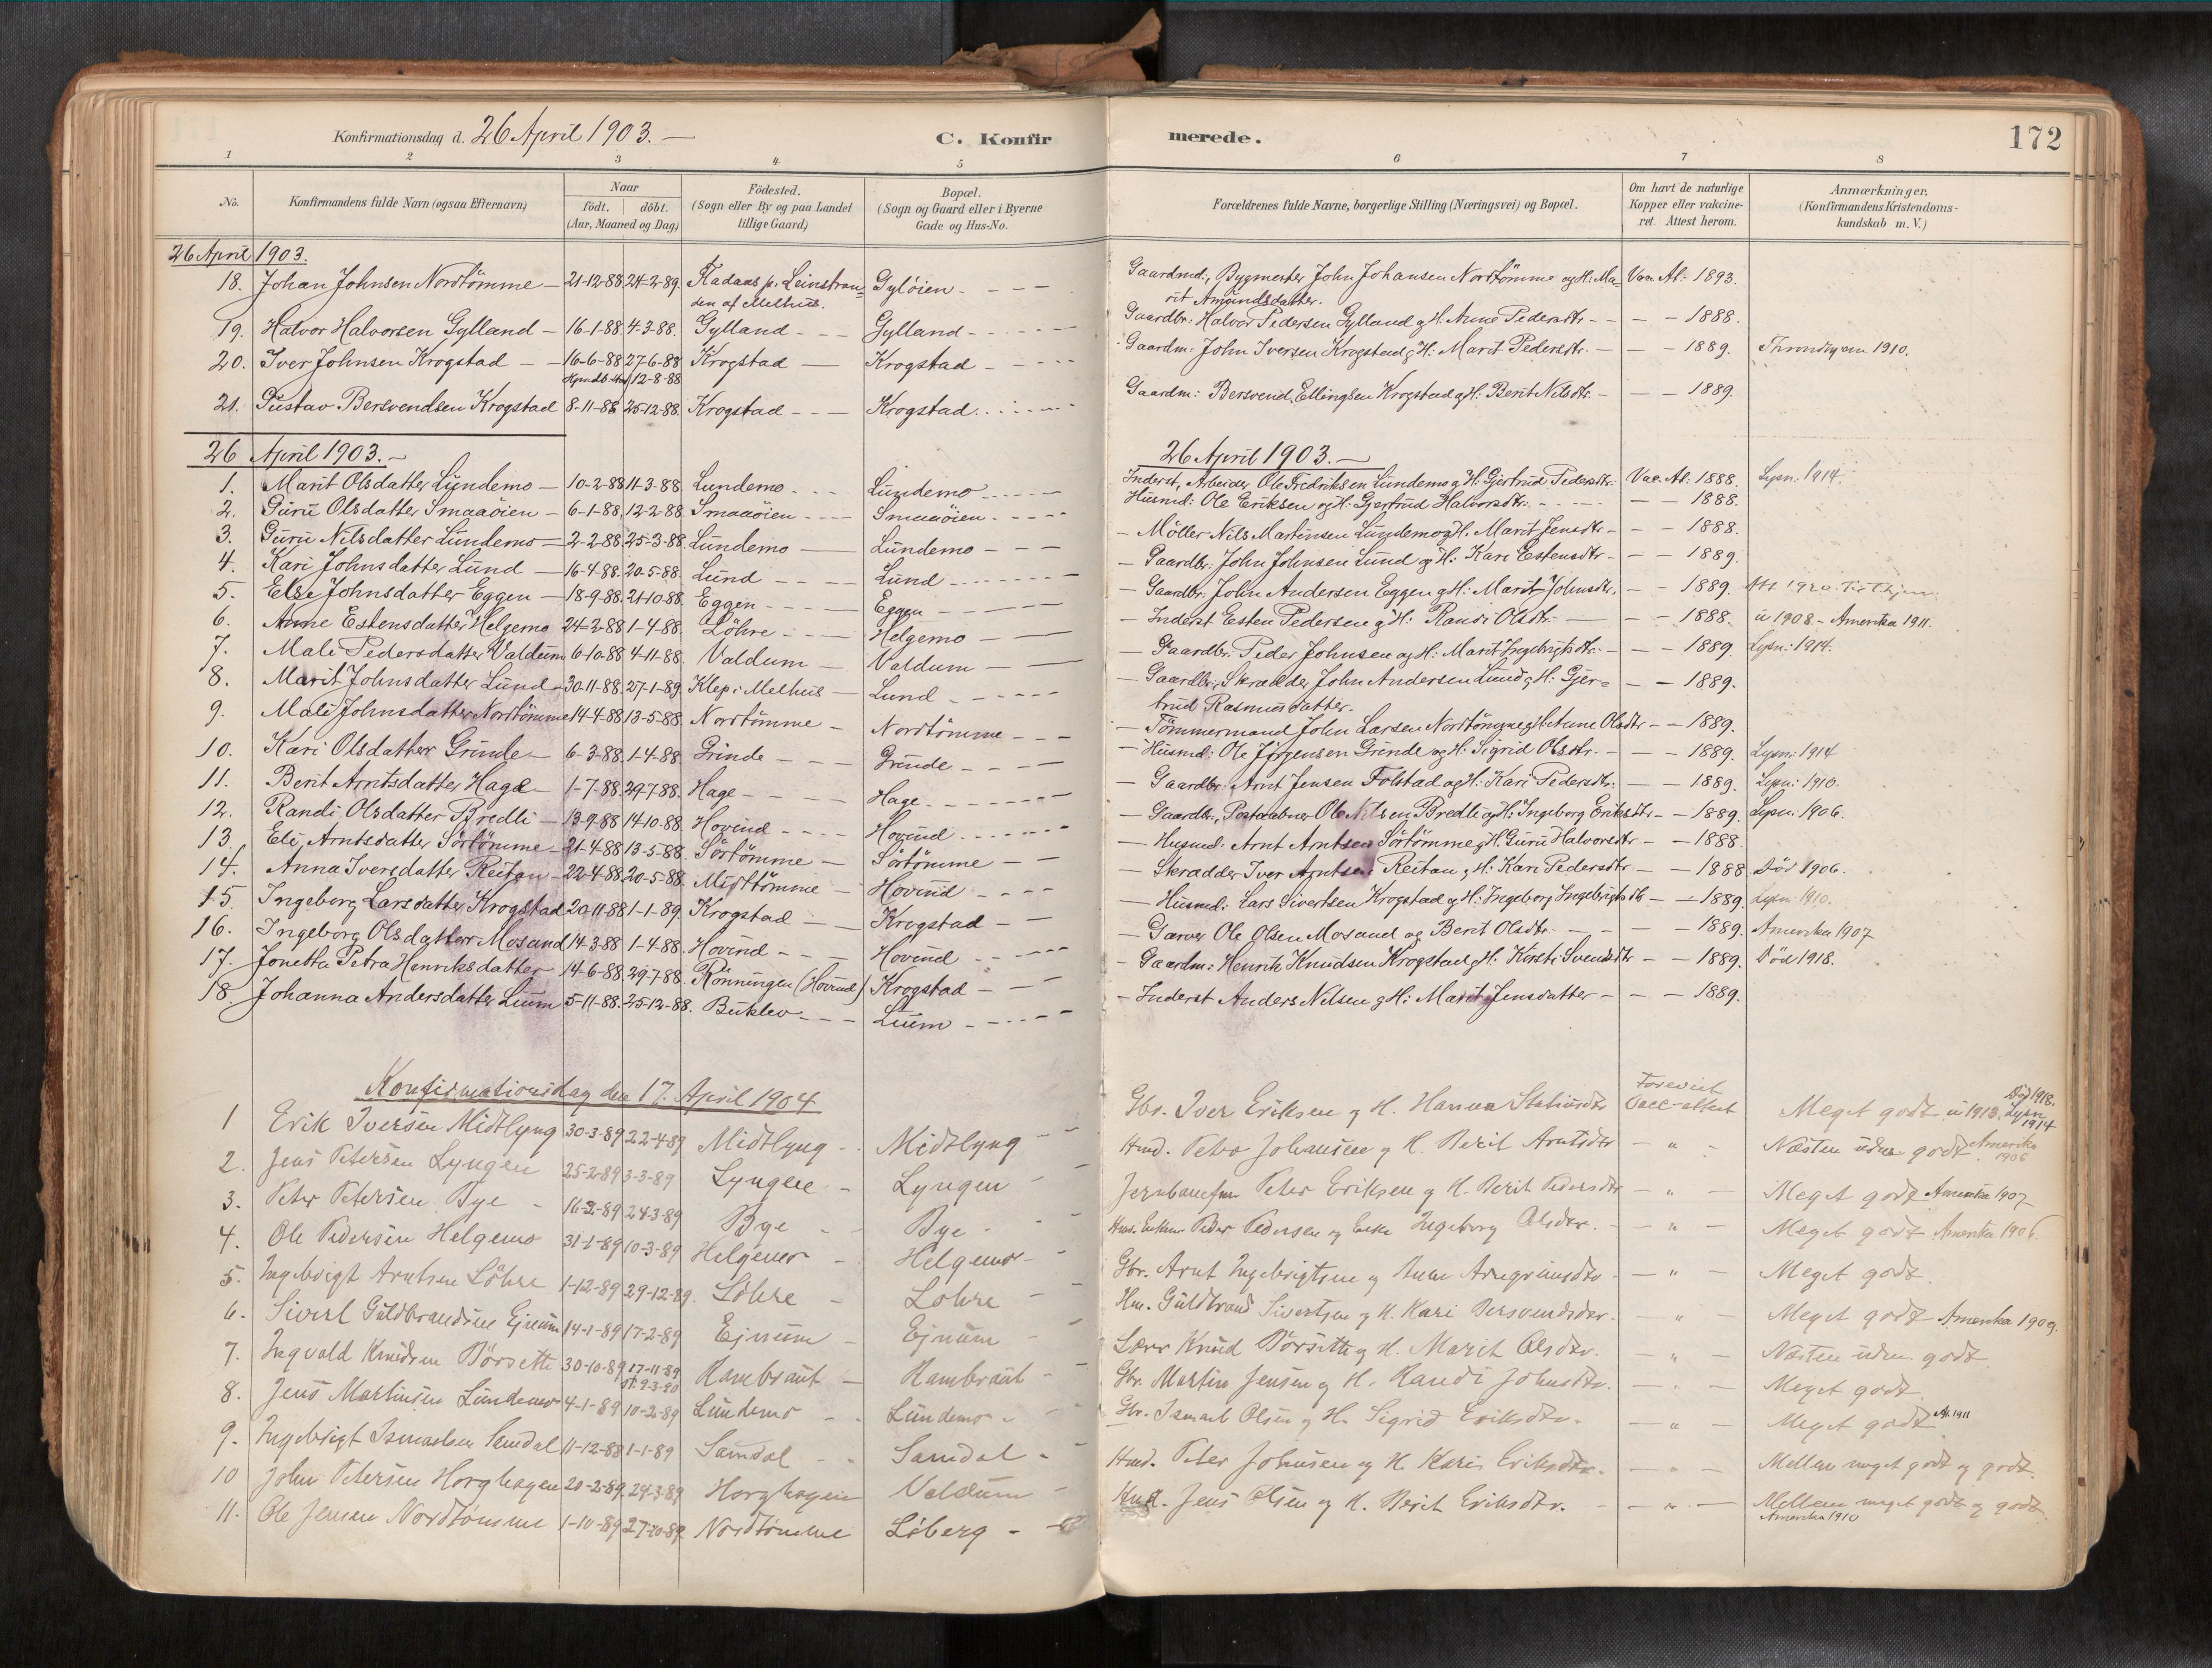 Konfirmationsdag d. 26 April 1903. —
C. Konfirmerede.
172
1 2 3 4 5 6 7 8
No. Konfirmandens fulde Navn (ogsaa Efternavn) Naar födt. döbt. (Aar, Maaned og Dag) Födested. (Sogn eller By og paa Landet tillige Gaard) Bopæl. (Sogn og Gaard eller i Byerne Gade og Hus-No. Forældrenes fulde Navne, borgerlige Stilling (Næringsvei) og Bopæl. Om havt de naturlige Kopper eller vakcineret. Attest herom. Anmærkninger. (Konfirmandens Kristendomskundskab m. V.)
26 April 1903.
18. Johan Johnsen Nordtömme — 21-12-88 24-2-89. Leinstranden af Melhus. Gylöien - - — Gaardmd:, Bygmester John Johansen Nordtömme og H: Marit Amundsdatter. Vac. At: 1893.
19. Halvor Halvorsen Gylland — 16-1-88 4-3-88. Gylland - — Gylland - - - - Gaardbr: Halvor Pedersen Gylland og H. Anne Pedersdtr - — — 1888.
20. Iver Johnsen Krogstad — — 16-6-88 27-6-88 Hjemdöbt 12-8-88 Krogstad — Krogstad - - - Gaardm: John Iversen Krogstad g H: Marit Pedersdtr. — — — 1889. Throndhjem 1910.
21. Gustav Bersvendsen Krogstad 8-11-88 25-12-88. Krogstad - - — Krogstad - - - Gaardm: Bersvend Ellingsen Krogstad g H: Berit Nilsdtr. - — — 1889.
26 April 1903. — 26 April 1903. —
1. Marit Olsdatter Lundemo — 10-2-88 11-3-88. Lundemo - - Lundemo - - - Inderst, Arbeider Ole Fredriksen Lundemo g H. Gjertrud Pedersdtr. Vac. At. 1888. Lysn: 1914.
2. Guru Olsdatter Smaaöien — 6-1-88. 12-2-88. Smaaöien - - — Smaaöien - - - Husmd: Ole Eriksen og H: Gjertrud Halvorsdtr. - - — 1888.
3. Guru Nilsdatter Lundemo — 2-2-88. 25-3-88. Lundemo — Lundemo - - — - Möller Nils Martinsen Lundemo g H. Marit Jensdtr - — — 1888.
4. Kari Johnsdatter Lund — 16-4-88. 20-5-88. Lund - - — Lund - - - — Gaardbr: John Johnsen Lund og H. Kari Estensdtr - — — 1889.
5. Else Johnsdatter Eggen — 18-9-88. 21-10-88. Eggen - - — Eggen - - — — Gaardbr: John Andersen Eggen g H: Marit Johnsdtr. - — 1889.
6. Anne Estensdatter Helgemo 24-2-88 1-4-88. Löhre - - — Helgemo - — — Inderst Esten Pedersen g H: Randi Olsdtr. — — — 1888. u 1908 - Amerika 1911.
7. Mali Pedersdatter Valdum 6-10-88 4-11-88. Valdum — Valdum - — — Gaardbr. Peder Johnsen og H: Marit Ingebrigtsdtr. - — — 1889. Lysn: 1914.
8. Marit Johnsdatter Lund - 30-11-88. 27-1-89. Klep i Melhus — Lund - - - — Gaardbr, Skrædder John Andersen Lund g H: Gjertrud Rasmusdatter. — — 1889.
9. Mali Johnsdatter Nordtömme 14-4-88 13-5-88 Nordtömme - Nordtömme - - — Tömmermand John Larsen Nordtömme g H. Anne Olsdtr - — 1889.
10. Kari Olsdatter Grinde — 6-3-88. 1-4-88. Grinde - - — Grinde - - — Husmd: Ole Jörgensen Grinde og H: Sigrid Olsdtr. - — — 1889. Lysn: 1914
11. Berit Arntsdatter Hage — 1-7-88. 29-7-88. Hage - - - Hage - - - — Gaardbr: Arnt Jensen Folstad og H: Kari Pedersdtr: — — 1889. Lysn: 1910.
12. Randi Olsdatter Bredli — 13-9-88 14-10-88 Hovind - - - Hovind - - - — Gaardbr, Postaabner Ole Nilsen Bredli og H: Ingeborg Eriksdtr - — 1889. Lysn: 1906.
13. Eli Arntsdatter Sörtömme - 21-4-88 13-5-88. Sörtömme — Sörtömme — — Husmd. Arnt Arntsen Sörtömme g H. Guru Halvorsdtr - — 1888.
14. Anna Iversdatter Reitan - 22-4-88 20-5-88. Midttömme — Hovind - - — Skrædder Iver Arntsen Reitan g H: Kari Pedersdtr — — 1888 Död 1906.
15. Ingeborg Larsdatter Krogstad 20-11-88 1-1-89. Krogstad — Krogstad - — Husmd: Lars Sivertsen Krogstad g H: Ingeborg Ingebrigtsdtr — — 1889. Lysn: 1910.
16. Ingeborg Olsdatter Mosand 14-3-88 1-4-88. Hovind - - Hovind - - — Garver Ole Olsen Mosand og Berit Olsdtr. - — — 1889. Amerika 1907
17. Jonetta Petra Henriksdatter 14-6-88 29-7-88. Rönningen (Hovind) Krogstad - — - Gaardm: Henrik Knudsen Krogstad g H. Kirsti Svendsdtr — — 1889. Död 1918.
18. Johanna Andersdatter Lium 5-11-88. 25-12-88. Buklev - - Lium - - - - Inderst Anders Nilsen g H: Marit Jensdatter — — — 1889.
Konfirmationsdag den 17. April 1904
1 Erik Iversen Midtlyng 30-3-89 22-4-89 Midtlyng - Midtlyng Gbr. Iver Eriksen g H. Hanna Forevist Vacc-attest Meget godt. u 1913. Lysn 1914 Död 1918.
2. Jens Petersen Lyngen 25-2-89 3-3-89 Lyngen - Lyngen Hmd. Peter Johansen g H. Berit Arntsdtr — " - Næsten udm. godt. Amerika 1906
3. Peter Petersen Bye - 16-2-89 24-3-89 Bye - Bye Peter Eriksen g H. Berit Pedersdtr — " — Meget godt. Amerika 1907
4. Ole Pedersen Helgemo 31-1-89 10-3-89 Helgemo - Helgemo - Peder Pedersen og Ingeborg Olsdtr. — " — Meget godt Amerika 1906.
5. Ingebrigt Arntsen Löhre 1-12-89 29-12-89. Löhre - Löhre - Gbr. Arnt Ingebrigtsen g Anne Arngrimsdtr - — " — Meget godt.
6. Sivert Guldbrandsen Ejnum 14-1-89 17-2-89 Ejnum - Ejnum Hm. Guldbrand Sivertsen g H. Kari Bersvendsdtr. — " — Meget godt Amerika 1909.
7. Ingvald Knudsen Börseth 30-10-89 17-11-89 St. 9-3-90 Rambraut — Rambraut - Lærer Knud Börseth g H. Marit Olsdtr. — " — Næsten udm. godt.
8. Jens Martinsen Lundemo 4-1-89 10-2-89 Lundemo - Lundemo - Gbr. Martin Jensen g H. Randi Johnsdtr. — " — Meget godt.
9. Ingebrigt Ismaelsen Samdal 11-12-88 1-1-89 Samdal - Samdal - Gbr. Ismael Olsen g H. Sigrid Eriksdtr. — " — Meget godt. Ak. 1911
10 John Petersen Horghagen 20-2-89. 24-3-89 Horghagen Valdum - Hmd. Peter Johnsen og H. Kari Eriksdtr. — " — Mellem meget godt og godt.
11. Ole Jensen Nordtömme 1-10-89 27-10-89. Nordtömme Löberg - Hmd. Jens Olsen og H. Berit Eriksdtr. - — " — Mellem meget godt og godt
Amerika 1910